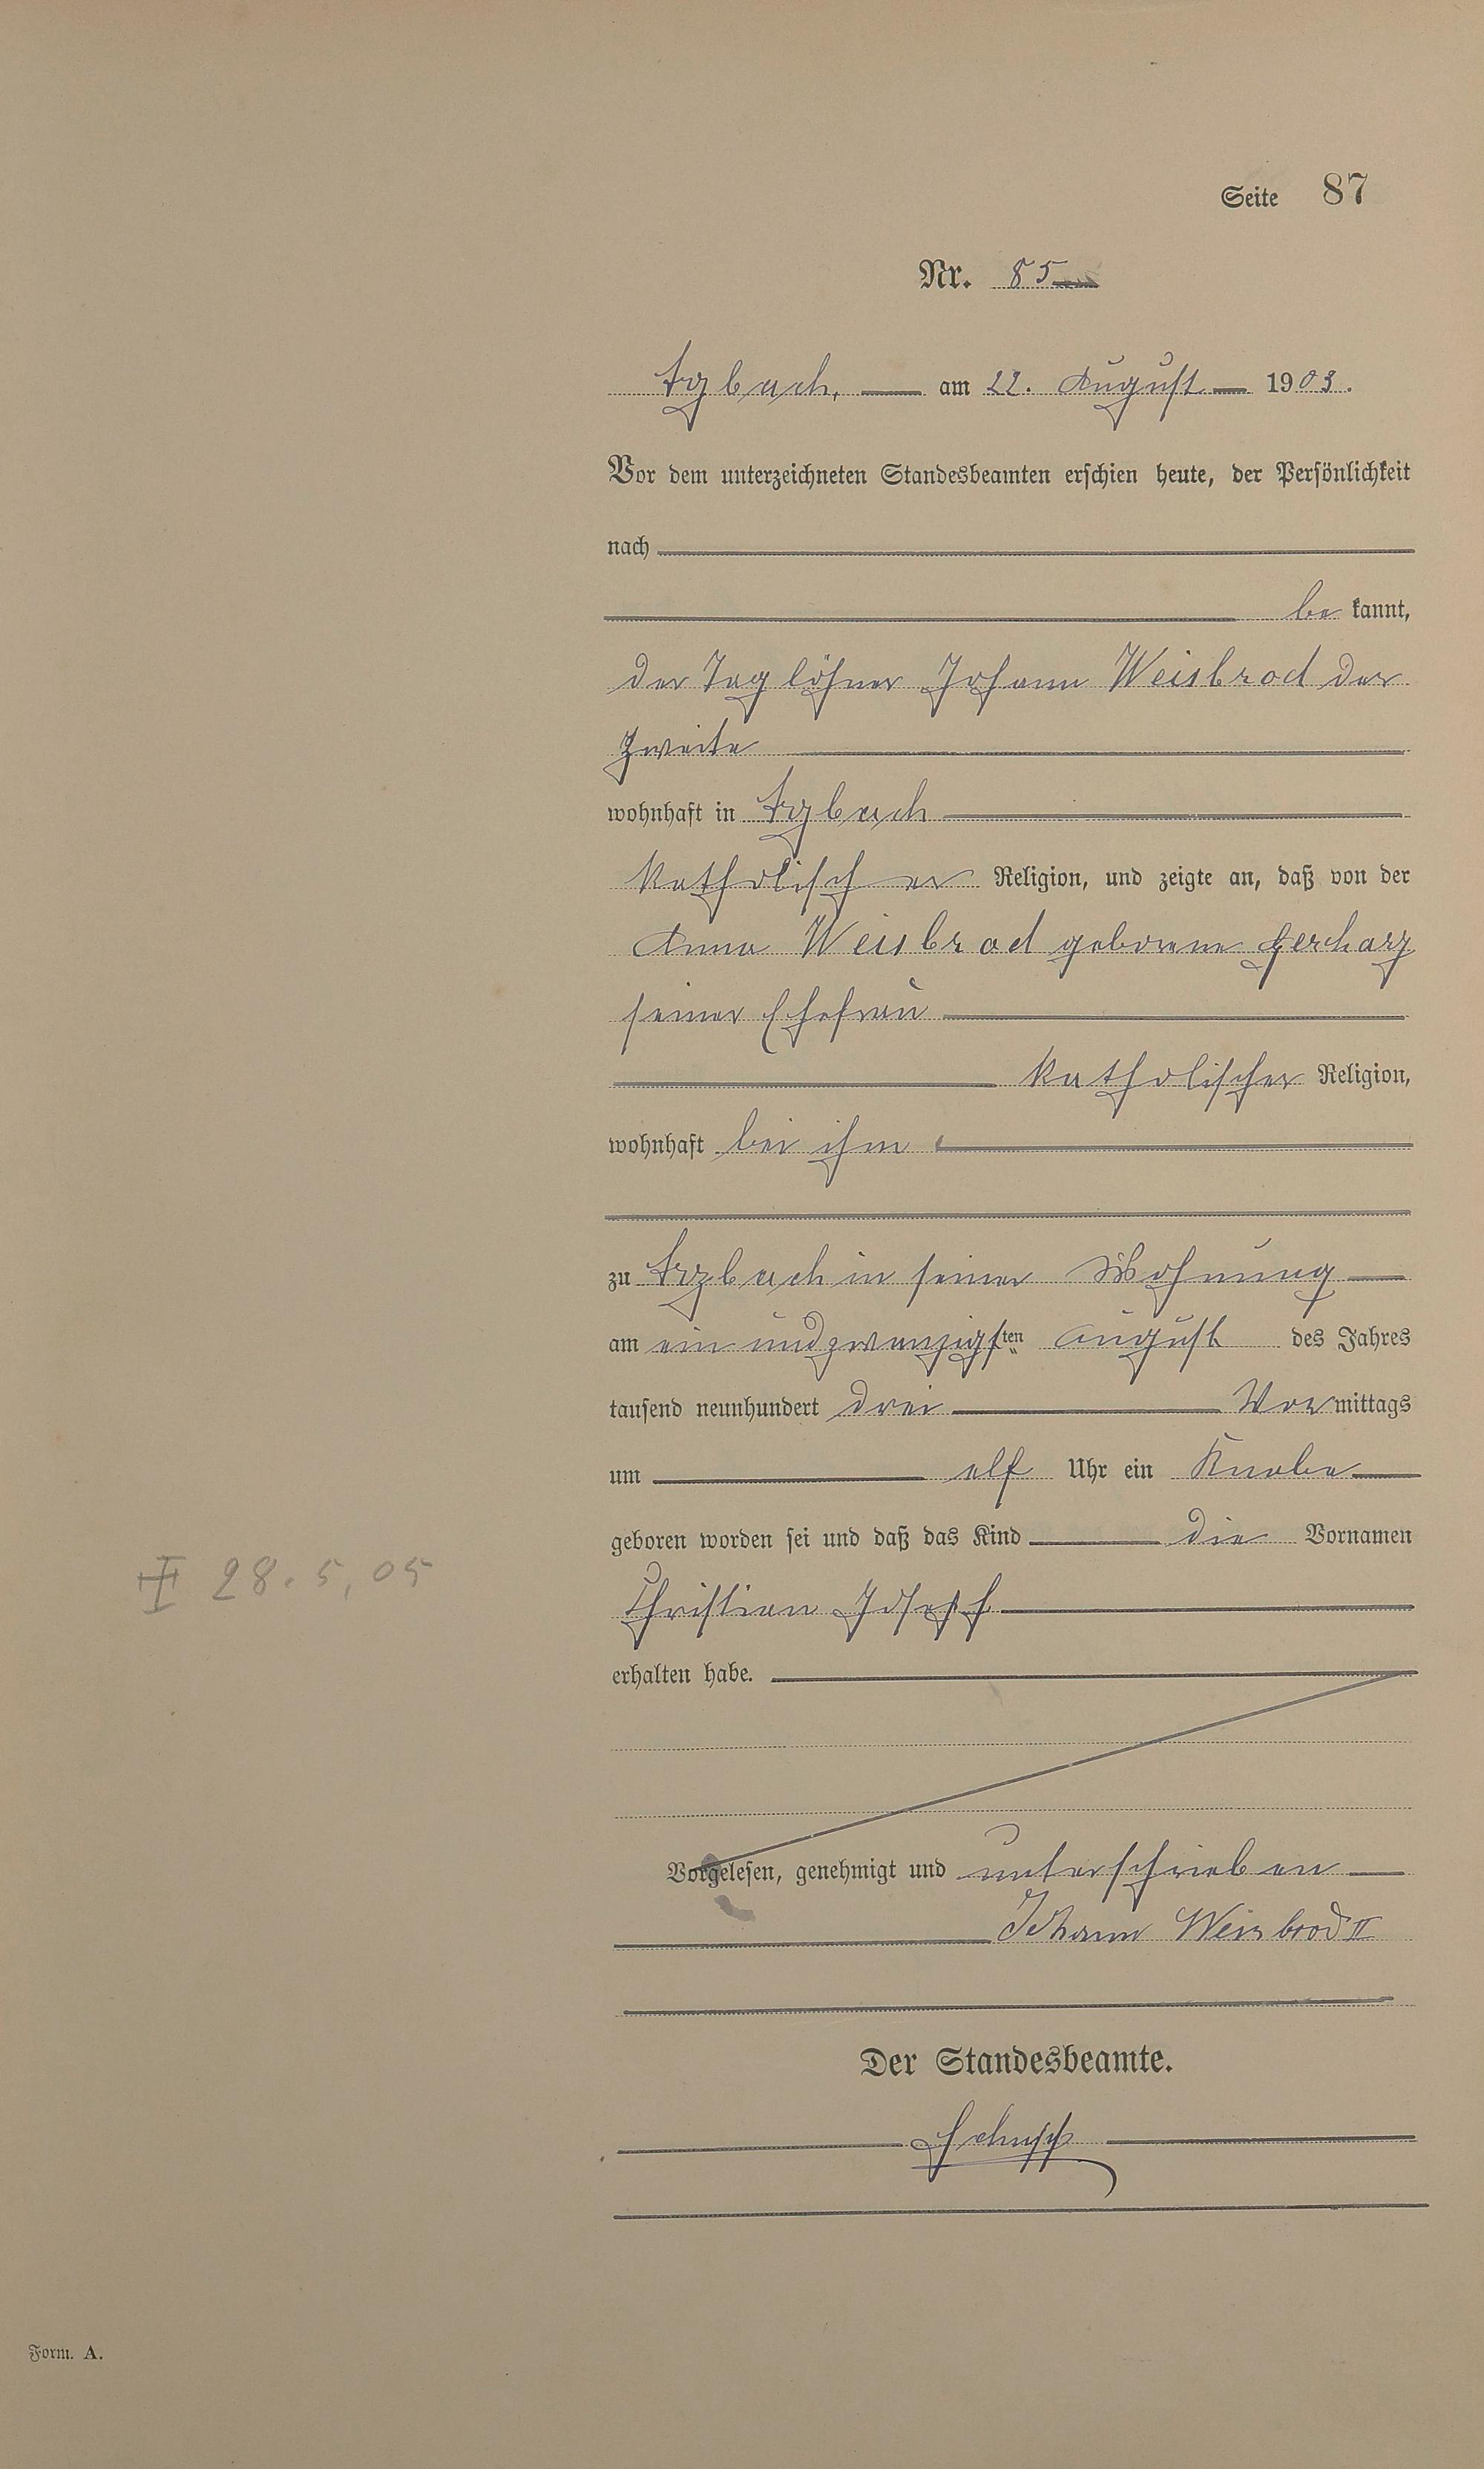 Seite 87
Nr. 85
Arzbach, am 22. August 1903.
Vor dem unterzeichneten Standesbeamten erschien heute, der Persönlichkeit
nach
be kannt,
der Taglöhner Johann Weisbrod der
Zweite
wohnhaft in Arzbach
katholischer Religion, und zeigte an, daß von der
Anna Weisbrod geborene Gerharz
seiner Ehefrau
katholischer Religion,
wohnhaft bei ihm
zu Arzbach in seiner Wohnung
am ein und zwanzigsten August des Jahres
tausend neunhundert drei Vormittags
um elf Uhr ein Knabe
geboren worden sei und daß das Kind die Vornamen
╪ 28.5.05
Christian Joseph
erhalten habe.
Vorgelesen, genehmigt und unterschrieben
Johann Weisbrod II
Der Standesbeamte.
Schupp
Form. A.